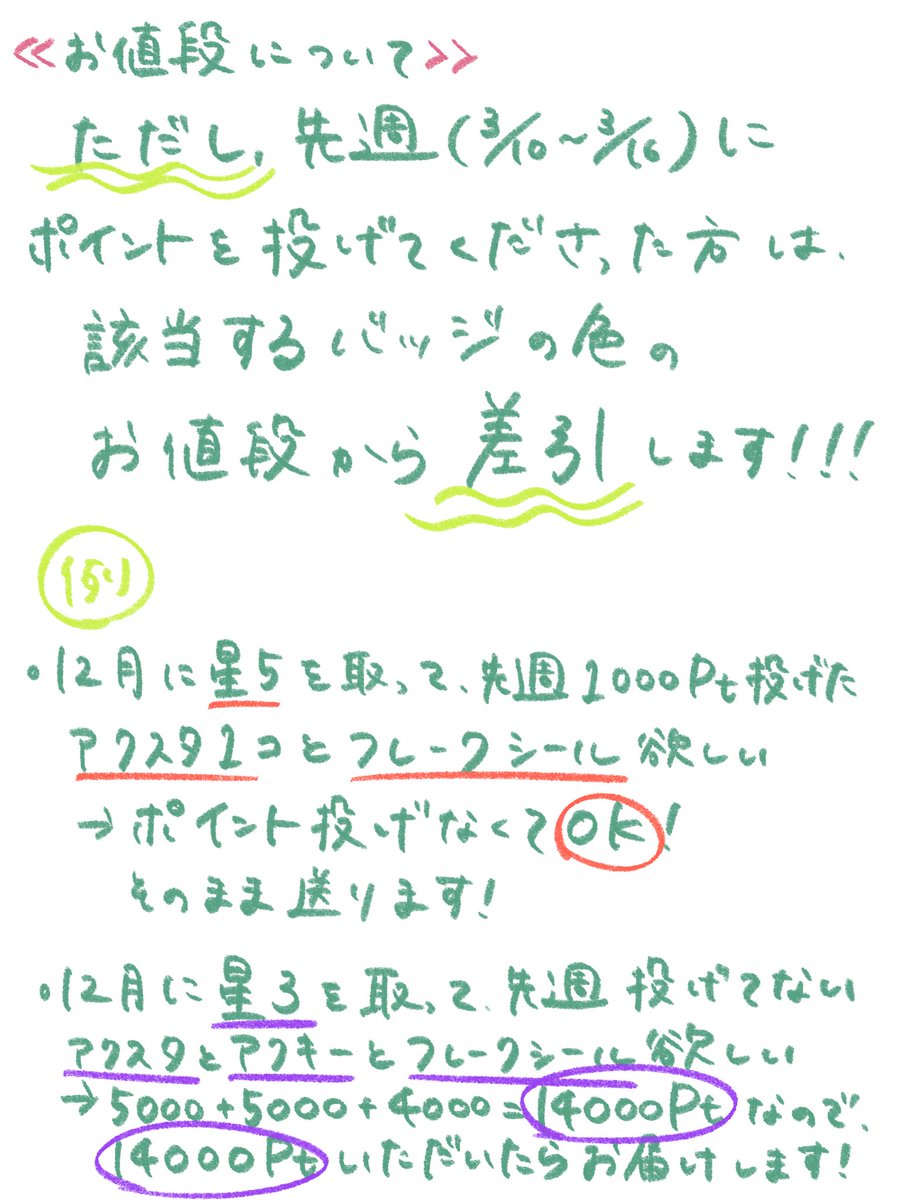 ≪お値段について≫
ただし、先週(3/10~3/16)に
ポイントを投げてくださった方は、
該当するバッジの色の
お値段から差引します!!!
例
・12月に星5を取って、先週1000Pt投げた
アクスタ1コとフレークシール欲しい
→ポイント投げなくてOK!
そのまま送ります!
・12月に星3を取って、先週投げてない
アクスタとアクキーとフレークシール欲しい
→5000+5000+4000=14000Ptなので、
14000Ptいただいたらお届けします!